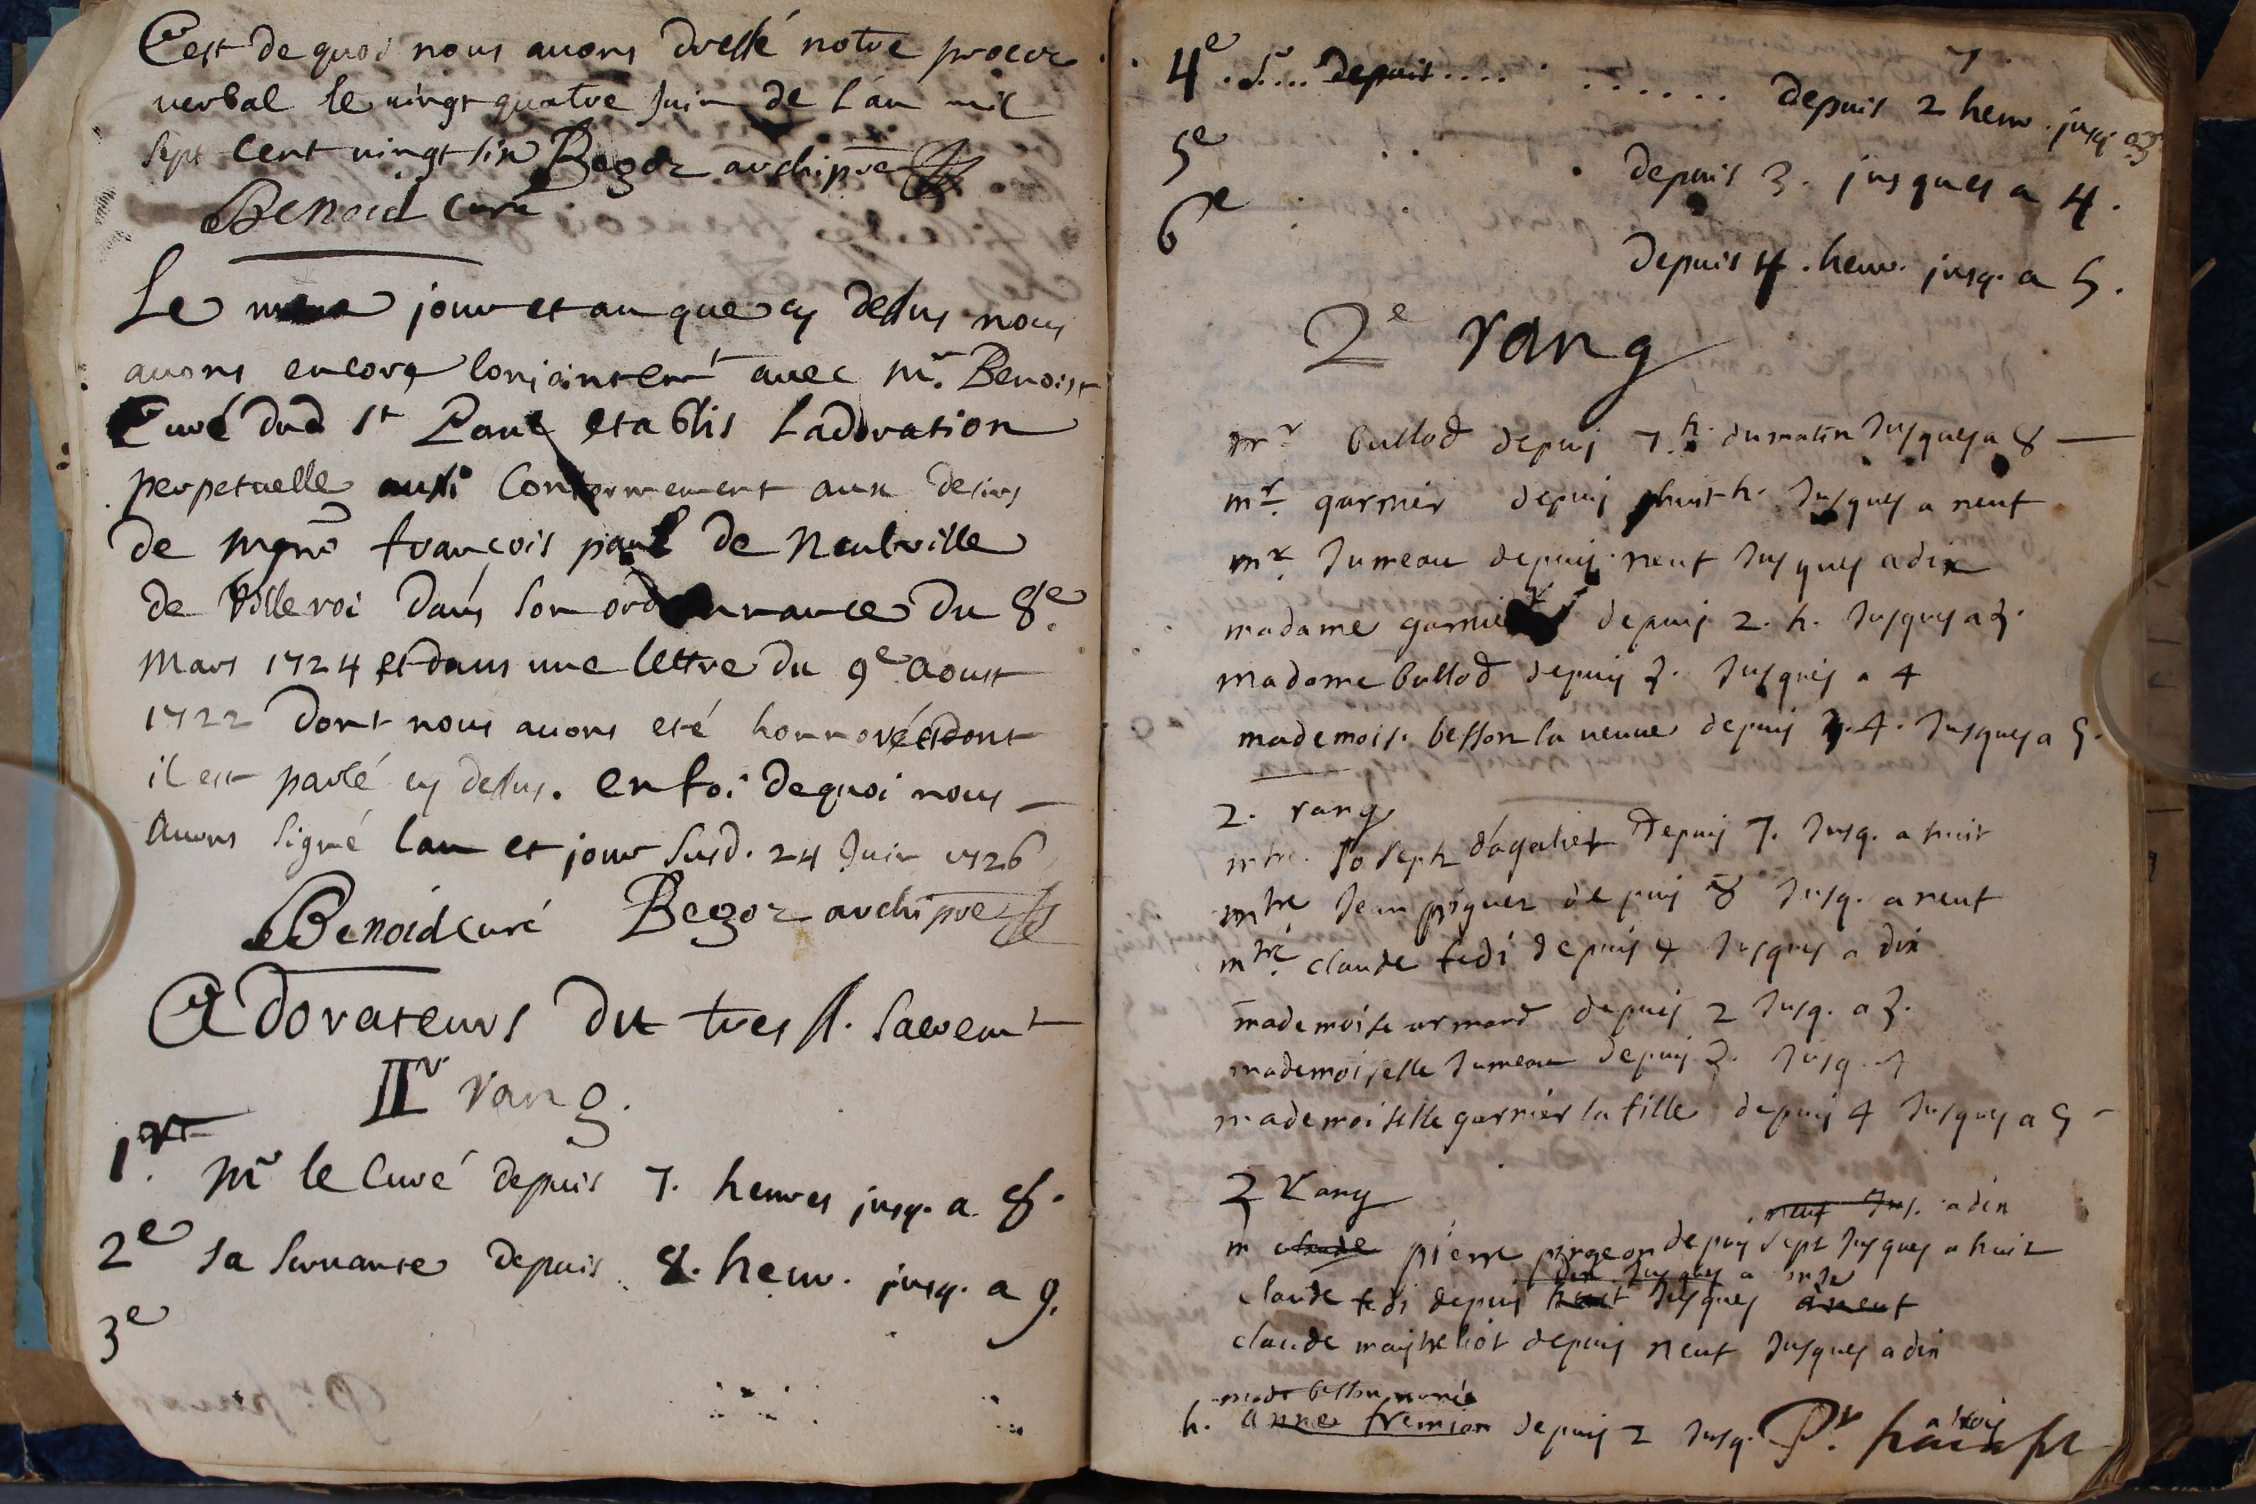 C'est de quoi nous avons dressé notre proces
verbal le vingt quatre Juin de l'an mil
sept cent vingt six Begoz archiprê
Benoid curé
Le même jour et an que cy dessus nous
avons encore conjointem.t avec m.r Benoist
Curé dud St Paul establis l'adoration
perpetuelle aussi conformement aux desirs
de mgnr françois paul de Neufville
de Villeroi dans son ordonnance du 8e
Mars 1724 et dans une lettre du 9e Aoust
1722 dont nous avons eté honnoré et dont
il est parlé cy dessus. en foi de quoi nous
avons signé l'an et jour susd. 24 Juin 1726
Benoid curé Begoz archipre
Adorateurs du tres st. sacrem.t
IIr rang.
1er Mr le Curé depuis 7. heures jusq. a 8.
2e sa servante depuis 8. heur. jusq. a 9.
3e
4e depuis depuis 2 heur. jusq. a 3
5e depuis 3. jusques a 4.
6e depuis 4. heur. jusq. a 5.
2e rang
mr bullod depuis 7.h. du matin Jusques a 8
mr. garnier depuis huit h. Jusques a neuf
mr. Jumeau depuis neuf Jusques a dix
madame garnier depuis 2. h. Jusques a 3.
madame bullod depuis 3. Jusques a 4
mademois. besson la veuve depuis 4. Jusques a 5.
2. rang
mtre. Joseph depuis 7. Jusq. a huit
mtre Jean piguez depuis 8 Jusq. a neuf
mtre claude fedi depuis 9 Jusques a dix
mademoise armand depuis 2 Jusq. a 3.
mademoiselle Jumeau depuis 3. Jusq. 4
mademoiselle garnier la fille depuis 4 Jusques a 5
3 rang
neuf Jus. a dix
m claude pierre pirgeon depuis sept Jusques a huit
dix Jusques a
claude fedi depuis huit Jusques a neuf
claude depuis neuf Jusques a dix
besson
h. anne fremion depuis 2 Jusq. a trois